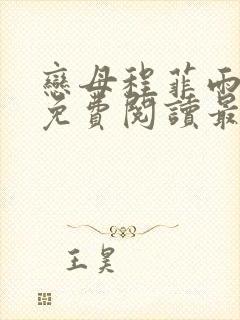 戀母程菲雨
免費閱讀最
王昊